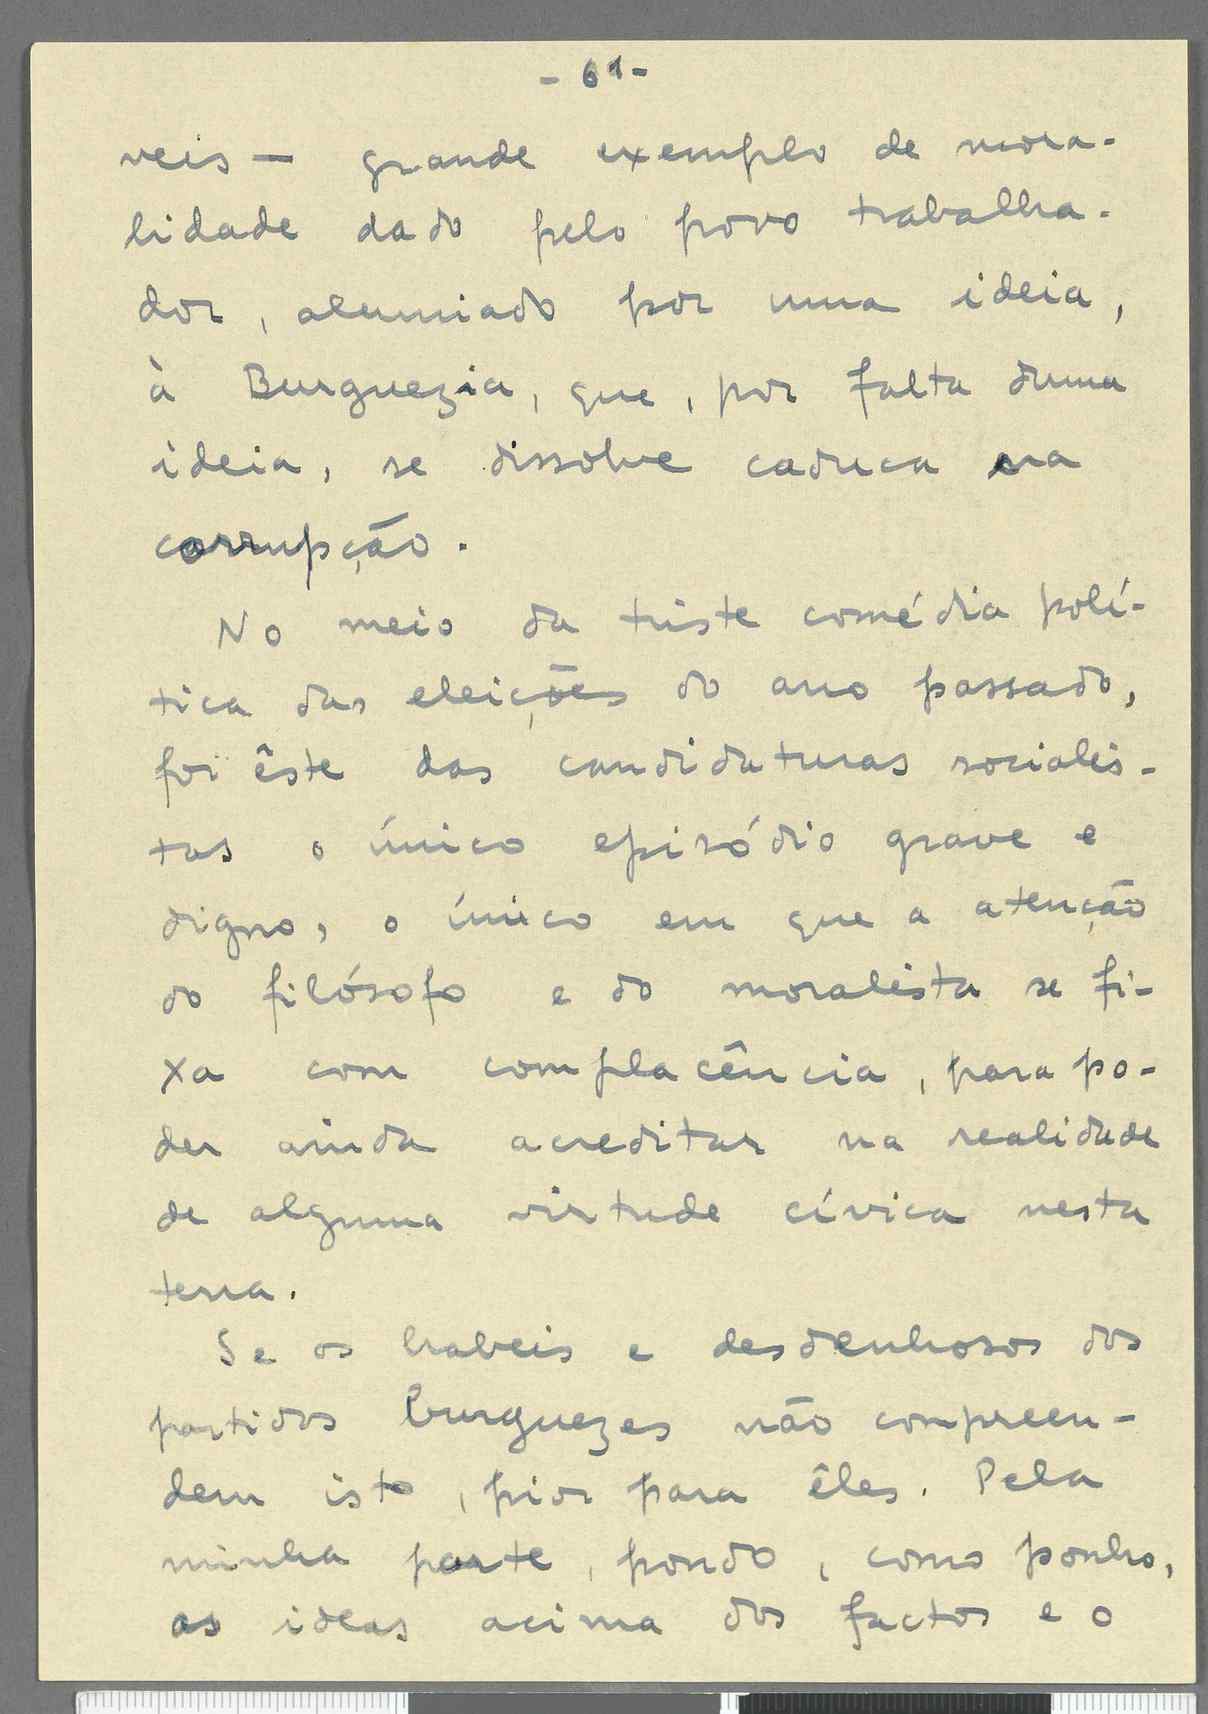 - 61 -
veis — grande exemplo de mora-
lidade dado pelo povo trabalha-
dor, alumiado por uma ideia,
à Burguezia, que, por falta duma
ideia, se dissolve caduca na
corrupção.
No meio da triste comédia polí-
tica das eleições do ano passado,
foi êste das candidaturas socialis-
tas o único episódio grave e
digno, o único em que a atenção
do filósofo e do moralista se fi-
xa com complacência, para po-
der ainda acreditar na realidade
de alguma virtude cívica nesta
terra.
Se os habeis e desdenhosos dos
partidos burguezes não compreen-
dem isto, pior para êles. Pela
minha parte, pondo, como ponho,
as ideas acima dos factos e o